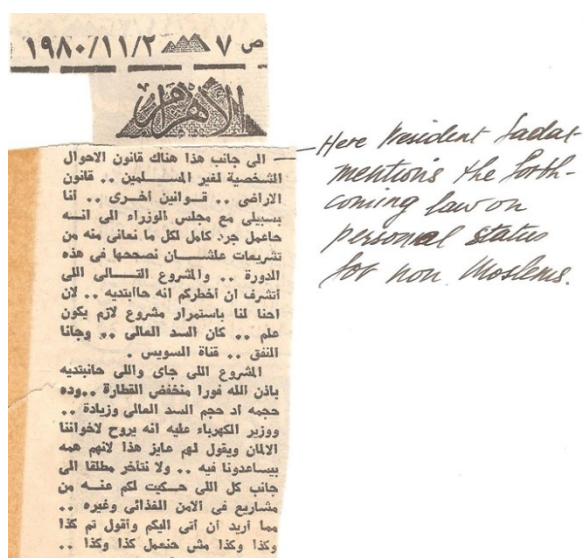 ص ٧ ١٩٨٠/١١/٢
الأهرام
الى جانب هذا هناك قانون الاحوال
الشخصية لغير المسلمين .. قانون
الاراضى .. قوانين أخرى .. أنا
بسبيلى مع مجلس الوزراء الى انه
حاعمل جرد كامل لكل ما نعانى منه من
تشريعات علشان نصححها فى هذه
الدورة .. والمشروع التالى اللى
أتشرف ان أخطركم انه حاابتديه .. لان
احنا لنا باستمرار مشروع لازم يكون
علم .. كان السد العالى .. وجانا
النفق .. قناة السويس .
المشروع اللى جاى واللى حانبتديه
باذن الله فورا منخفض القطارة ..وده
حجمه اد حجم السد العالى وزيادة ..
ووزير الكهرباء عليه انه يروح لاخواننا
الالمان ويقول لهم عايز هذا لانهم همه
بيساعدونا فيه .. ولا نتأخر مطلقا الى
جانب كل اللى حكيت لكم عنه من
مشاريع فى الامن الغذائى وغيره ..
مما أريد أن آتى اليكم وأقول تم كذا
وكذا وكذا مش حنعمل كذا وكذا ..
Here President Sadat
mentions the forth-
coming law on
personal status
for non Moslems.